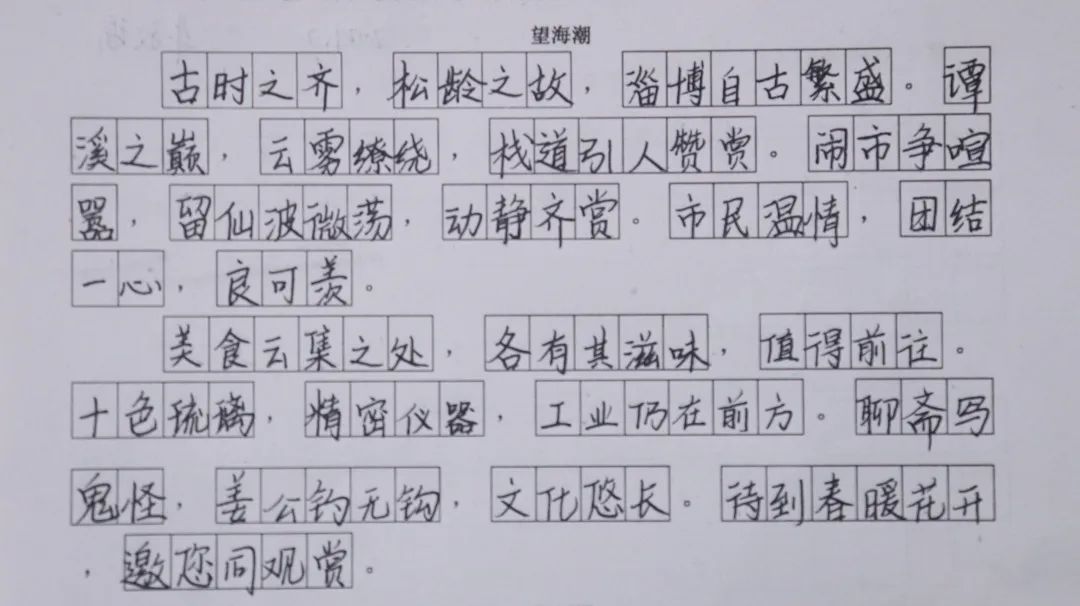 望海潮
古时之齐，松龄之故，淄博自古繁盛。谭
溪之巅，云雾缭绕，栈道引人赞赏。闹市争喧
嚣，留仙波微荡，动静齐赏。市民温情，团结
一心，良可羡。
美食云集之处，各有其滋味，值得前往。
十色琉璃，精密仪器，工业仍在前方。聊斋写
鬼怪，姜公钓无钩，文化悠长。待到春暖花开
，邀您同观赏。